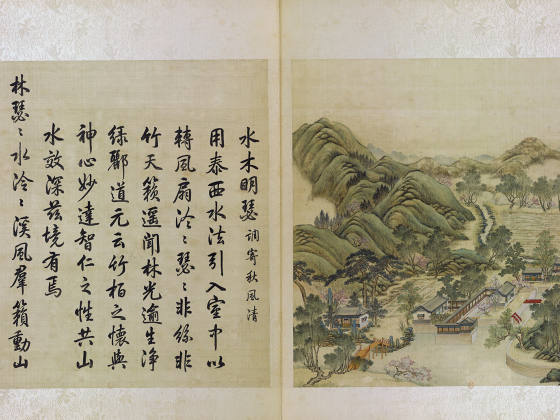 水木明瑟 调寄秋風清
用泰西水法引入室中以
轉風扇泠〻瑟〻非絲非
竹天籟遥聞林光逾生淨
綠酈道元云竹柏之懷與
神心妙達智仁之性共山
水效深兹境有焉
林瑟〻水泠〻溪風羣籟動山